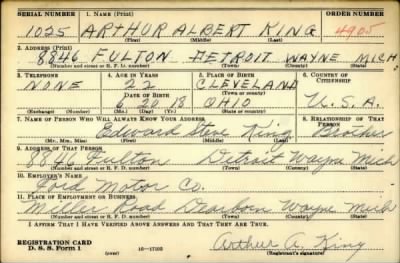 SERIAL NUMBER 1. NAME (Print) ORDER NUMBER
1025 ARTHUR ALBERT KING 4905
(First) (Middle) (Last)
2. ADDRESS (Print)
8846 FULTON DETROIT WAYNE MICH
(Number and street or R. F. D. number) (Town) (County) (State)
3. TELEPHONE 4. AGE IN YEARS 5. PLACE OF BIRTH 6. COUNTRY OF CITIZENSHIP
NONE 22 CLEVELAND
DATE OF BIRTH (Town or county)
6 20 18 OHIO U.S.A.
(Exchange) (Number) (Mo.) (Day) (Yr.) (State or country)
7. NAME OF PERSON WHO WILL ALWAYS KNOW YOUR ADDRESS 8. RELATIONSHIP OF THAT PERSON
Edward Steve King Brother
(Mr., Mrs., Miss) (First) (Middle) (Last)
9. ADDRESS OF THAT PERSON
8846 Fulton Detroit Wayne Mich
(Number and street or R. F. D. number) (Town) (County) (State)
10. EMPLOYER'S NAME
Ford Motor Co.
11. PLACE OF EMPLOYMENT OR BUSINESS
Miller Road Dearborn Wayne Mich
(Number and street or R. F. D. number) (Town) (County) (State)
I AFFIRM THAT I HAVE VERIFIED ABOVE ANSWERS AND THAT THEY ARE TRUE.
REGISTRATION CARD
D. S. S. Form 1 (over) 16—17105 Arthur A. King
(Registrant's signature)